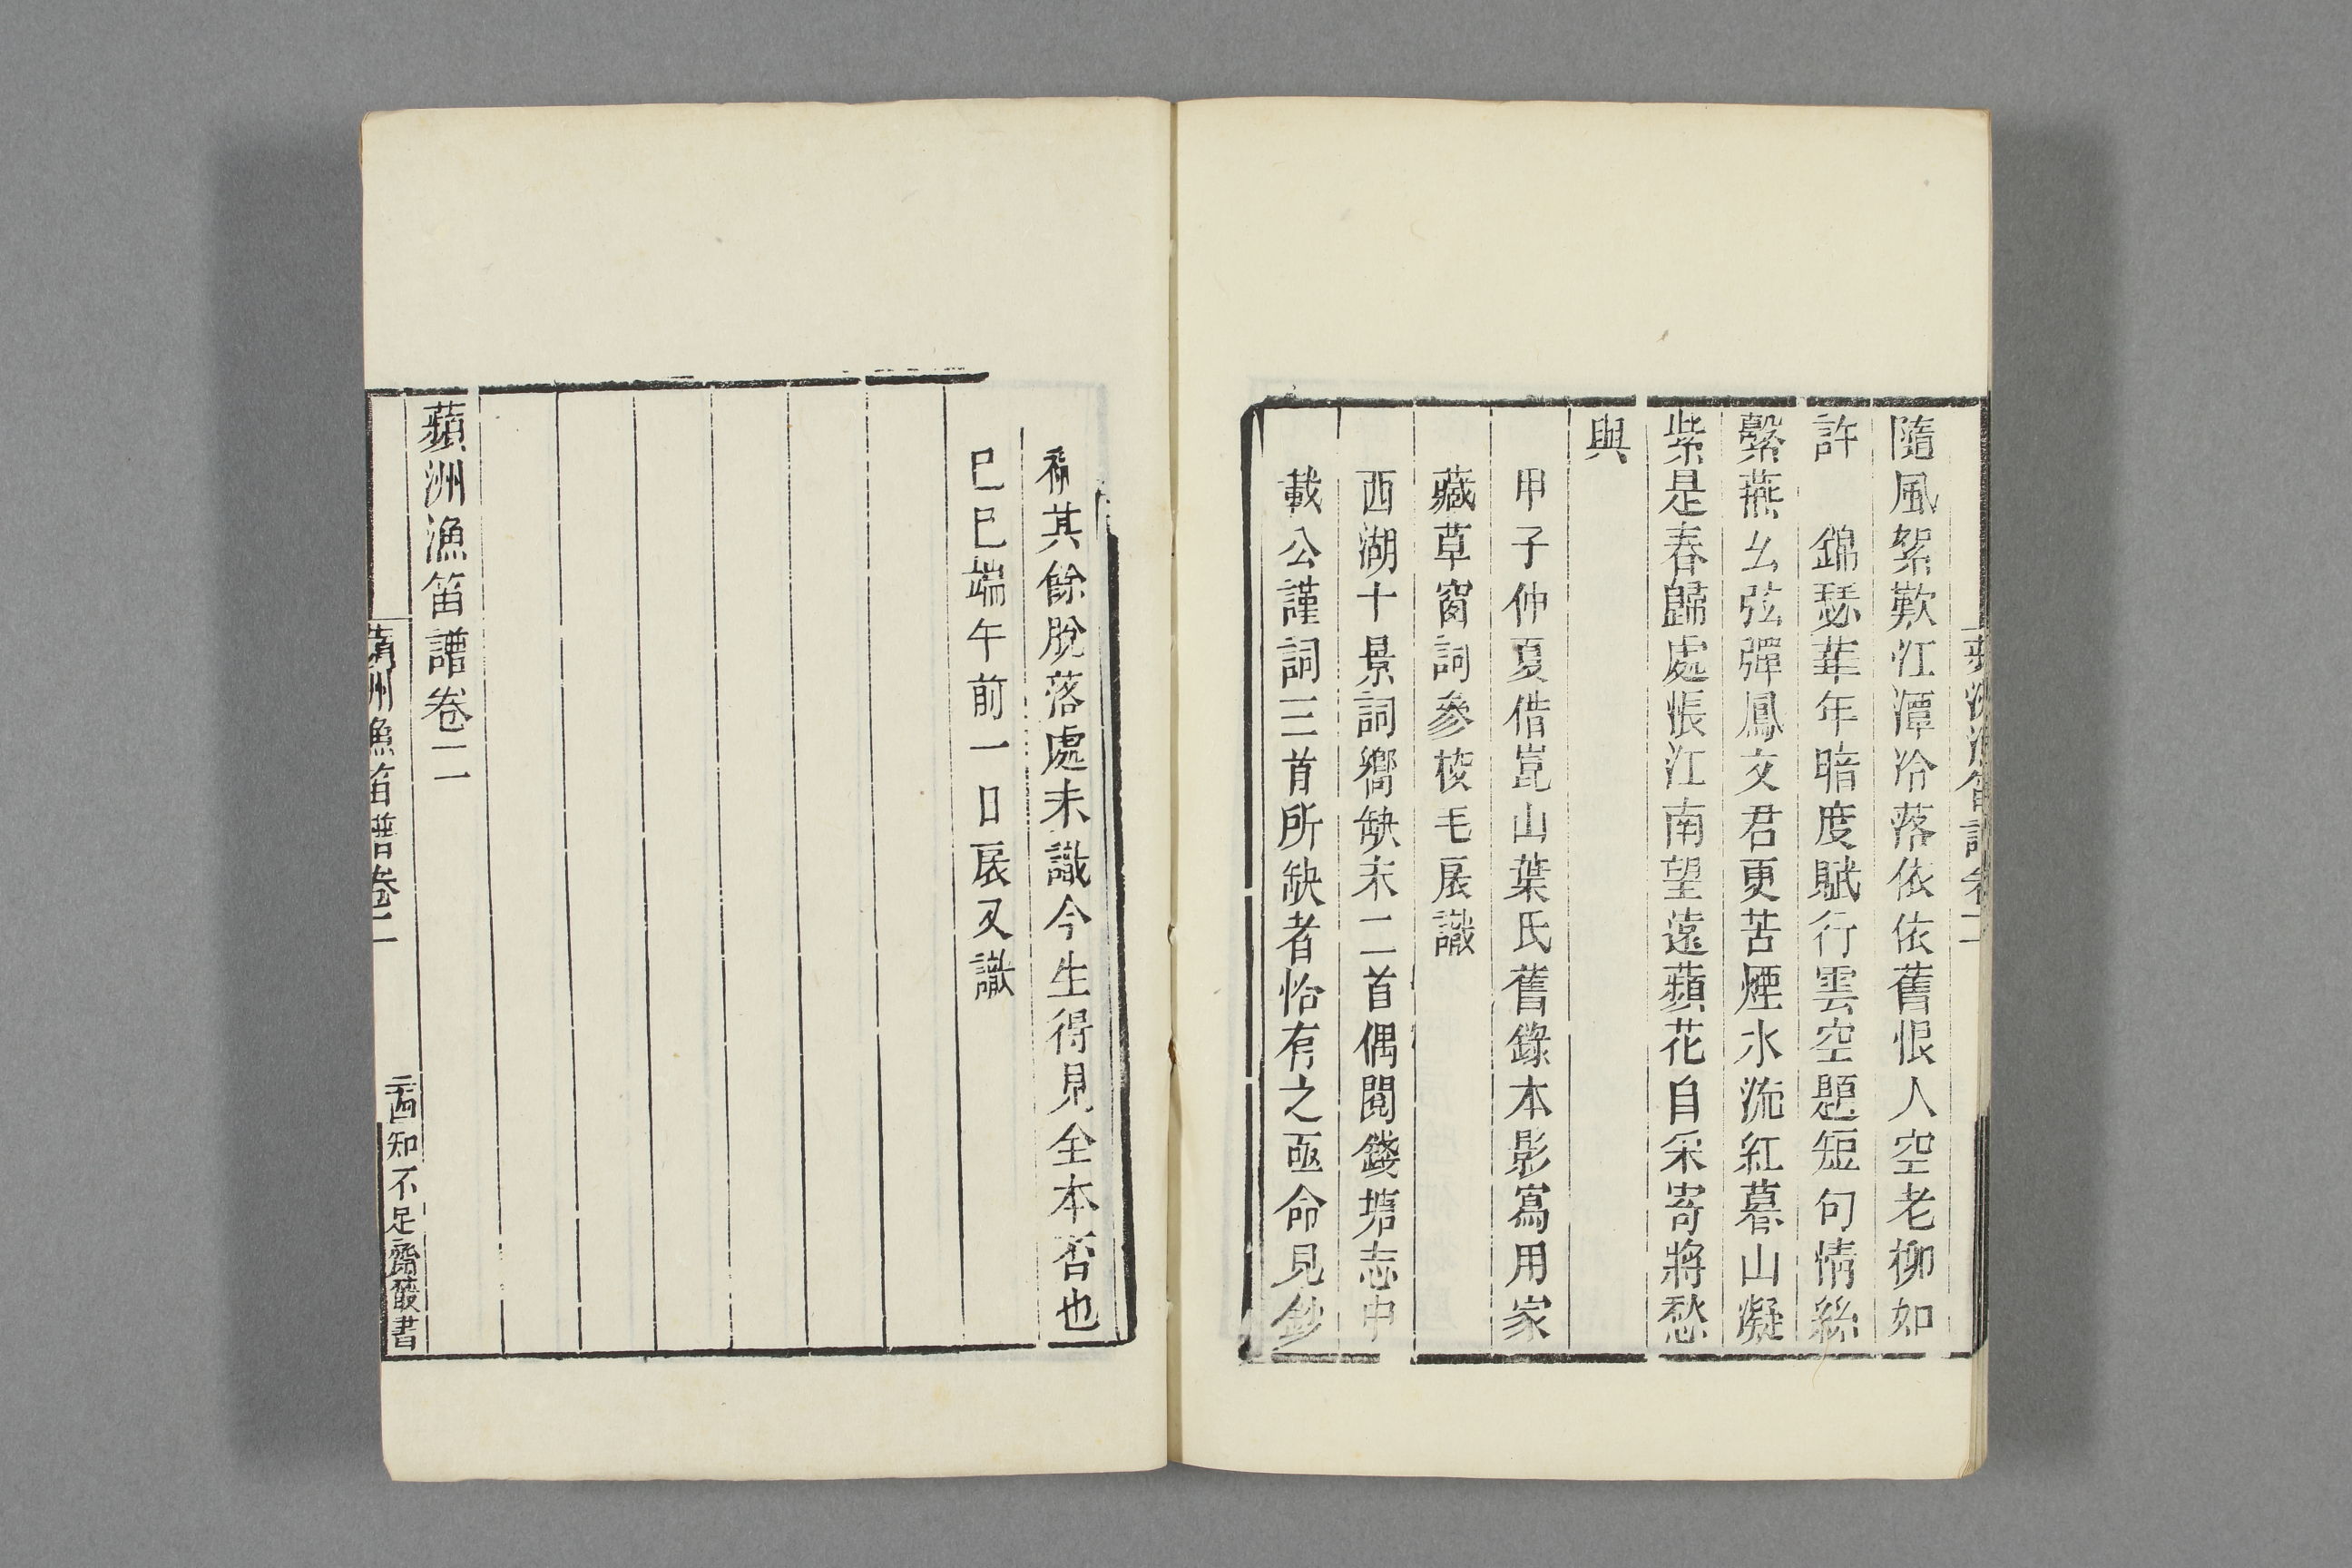 隨風絮歎江潭冷落依依舊恨人空老柳如
許　錦瑟華年暗度賦行雲空題短句情絲
繫燕么弦彈鳳文君更苦煙水流紅暮山凝
紫是春歸處悵江南望遠蘋花自采寄將愁
與
甲子仲夏借崑山葉氏舊錄本影寫用家
藏草窗詞參校毛扆識
西湖十景詞嚮缺末二首偶閱錢塘志中
載公謹詞三首所缺者恰有之亟命見鈔
補其餘脫落處未識今生得見全本否也
已巳端午前一日扆又識
蘋洲漁笛譜卷二
蘋洲漁笛譜卷二
知不足齋叢書